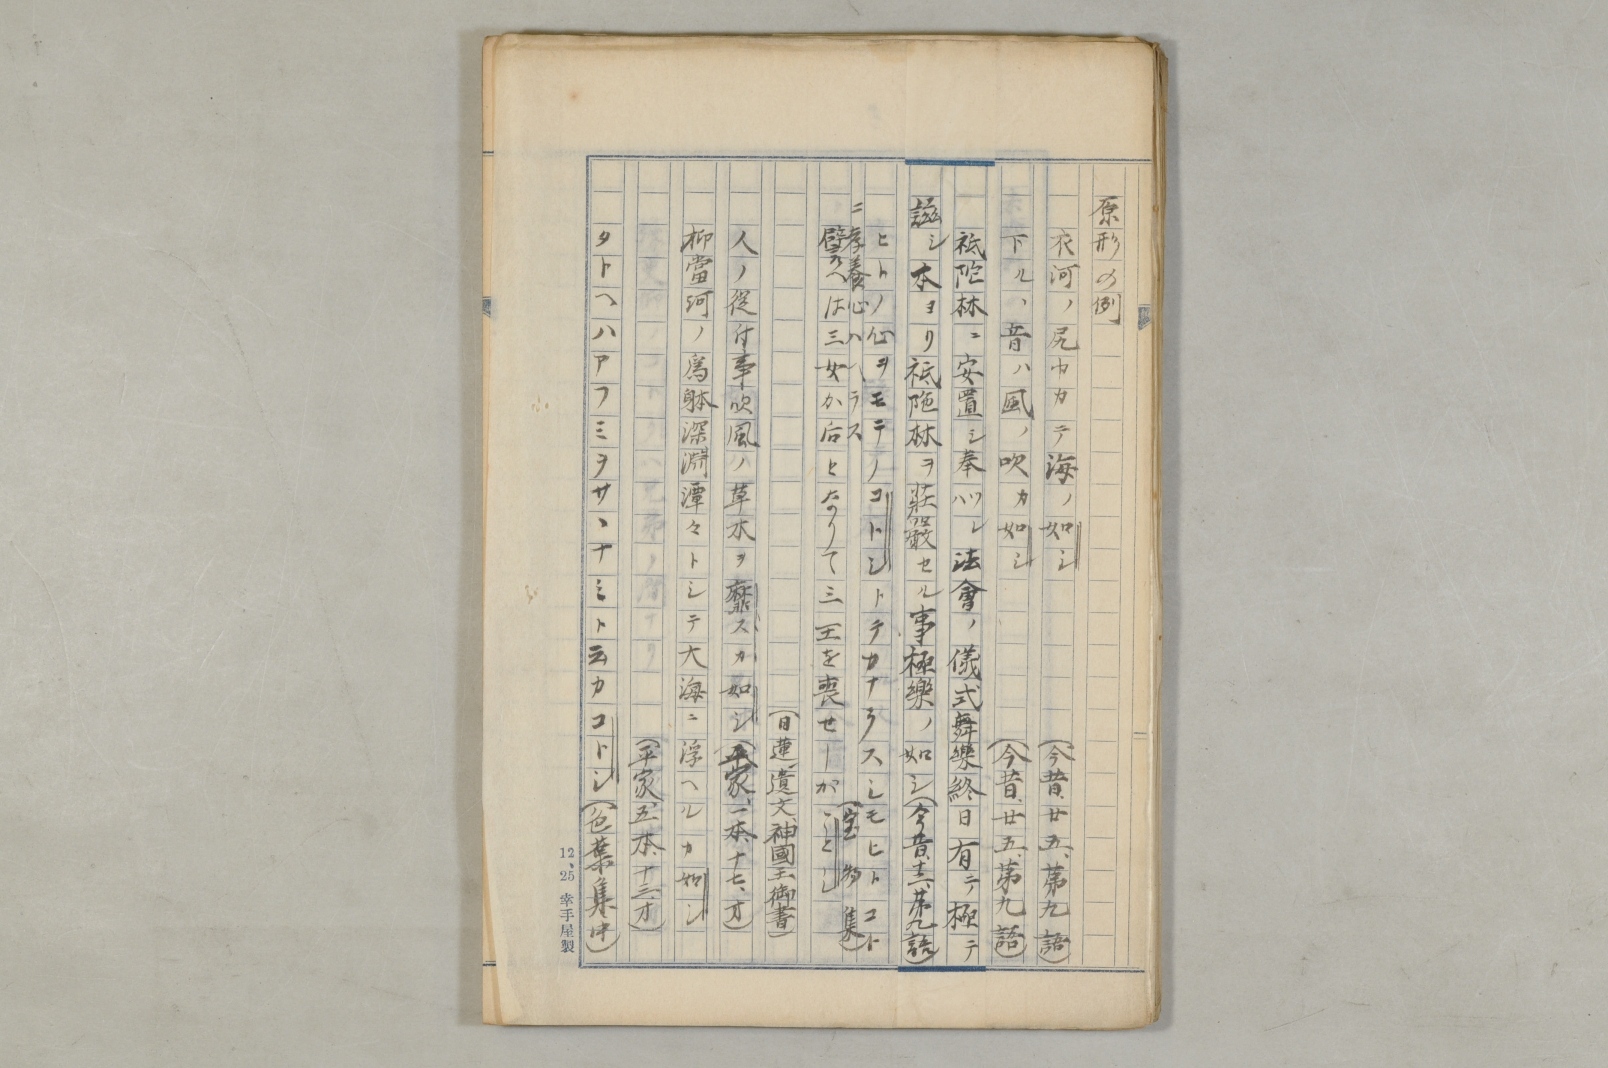 原形の例
衣河ノ尻ヤカテ海ノ如シ(今昔、廿五、第九語)
下ル、音ハ風ノ吹カ如シ(今昔、廿五、第九語)
祗陀林ニ安置シ奉ツレハ法會ノ儀式舞樂終日有テ極テ
シ本ヨリ祗陁林ヲ莊嚴セル事極樂ノ如シ(今昔、十二、第九語)
ヒトノ心ヲモテノコトシトテカナラスシモヒトコト
ニ孝養心ハヘラス(宝物集)
譬ヘは三女か后となりて三王を喪せしがことし
(日蓮遺文、神國王御書)
人ノ従付事吹風ノ草木ヲ靡スカ如シ(平家、一本、十七、オ)
柳當河ノ爲躰深淵潭々トシテ大海ニ浮ヘルカ如シ
(平家、五本、十三、オ)
タトヘハアフミヲサヽナミト云カコトシ(色葉集、中)
12、25 幸手屋製